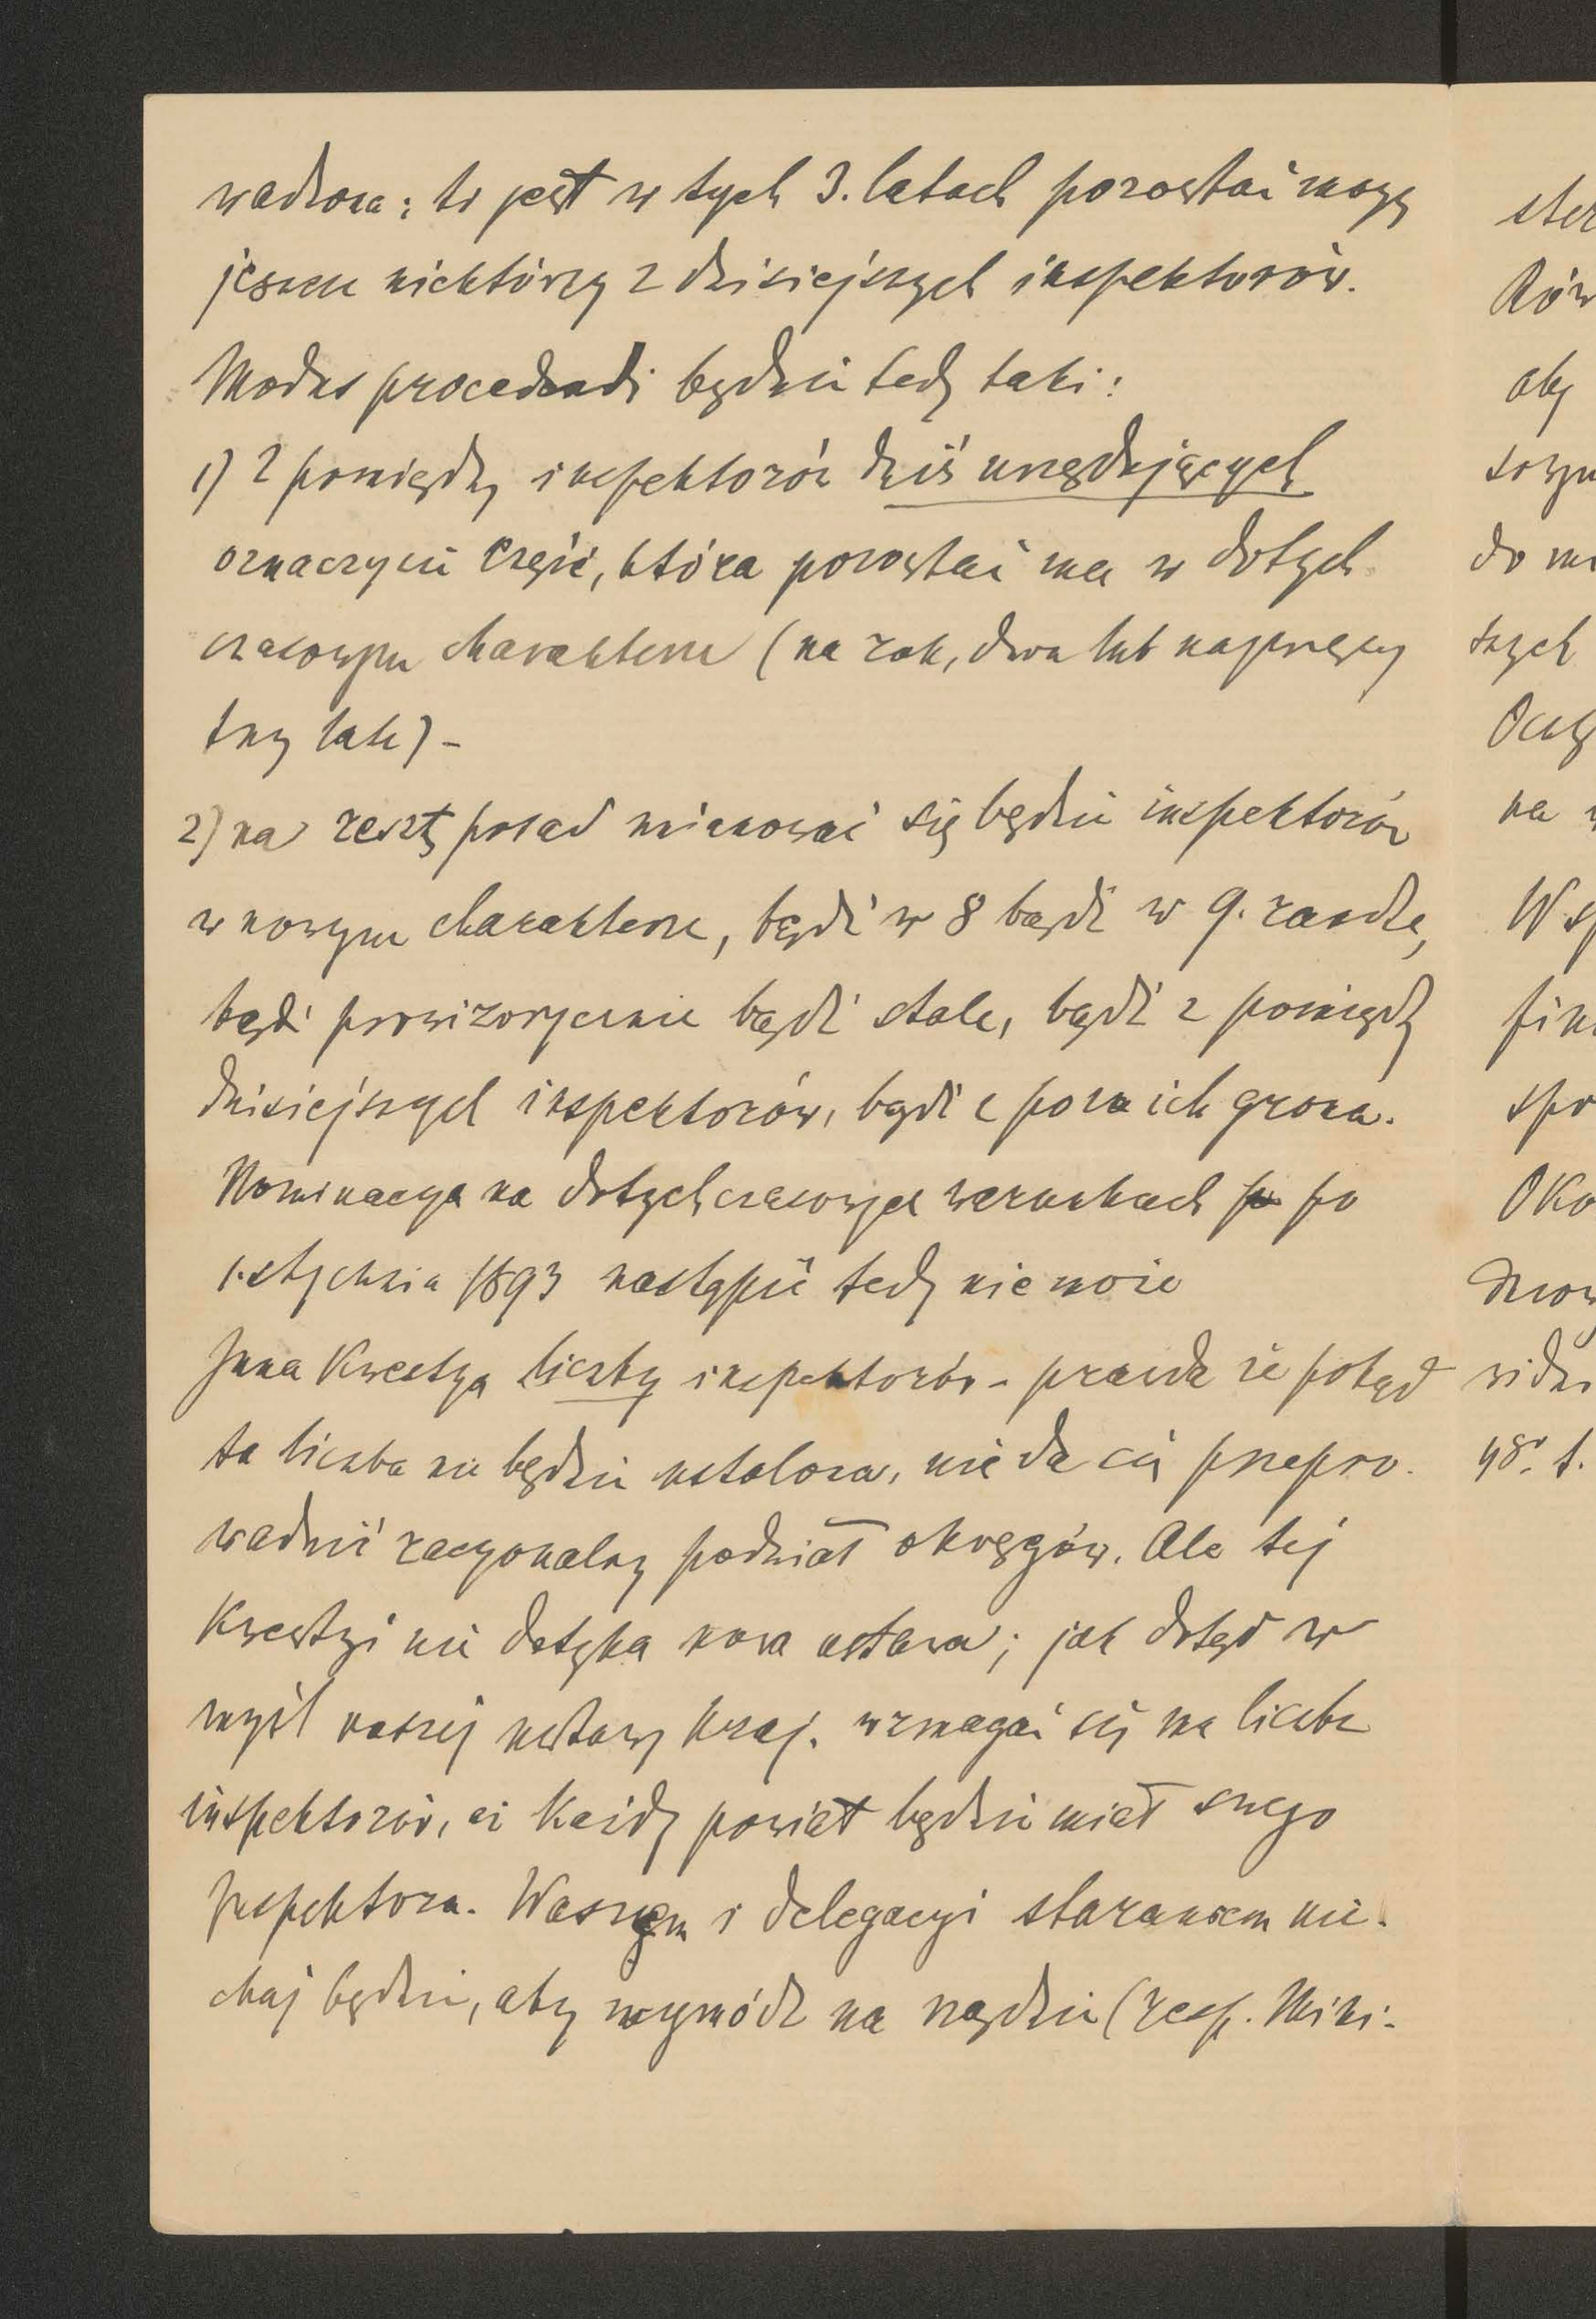 wadzona: to jest w tych 3. latach pozostać mogą
jeszcze niektórzy z dzisiejszych inspektorów.
Modus procedendi będzie tedy taki:
1) z pomiędzy inspektorów dziś urzędujących
oznaczycie część, która pozostać ma w dotych
czasowym charakterze (na rok, dwa lub najwięcej
trzy lata) –
2) na resztę posad mianować się będzie inspektorów
w nowym charakterze, bądź w 8 bądź w 9. randze,
bądź prowizorycznie bądź stale, bądź z pomiędzy
dzisiejszych inspektorów, bądź z poza ich grona.
Nominacya na dotychczasowych warunkach po
1. stycznia 1893 nastąpić tedy nie może
Inna kwestya liczby inspektorów – prawda że potąd
ta liczba nie będzie ustalona, nie da się przepro-
wadzić racyonalny podział okręgów. Ale tej
kwestyi nie dotyka nowa ustawa; jak dotąd w
myśl naszej ustawy kraj. wzmagać się ma liczba
inspektorów, aż każdy powiat będzie miał swego
Inspektora. Waszem i delegacyi staraniem nie-
chaj będzie, aby wymódz na rządzie (resp. Mini-
ster
Rów
aby
do mi
szych
na w
W sp
fin
spo
Oko
48. t.